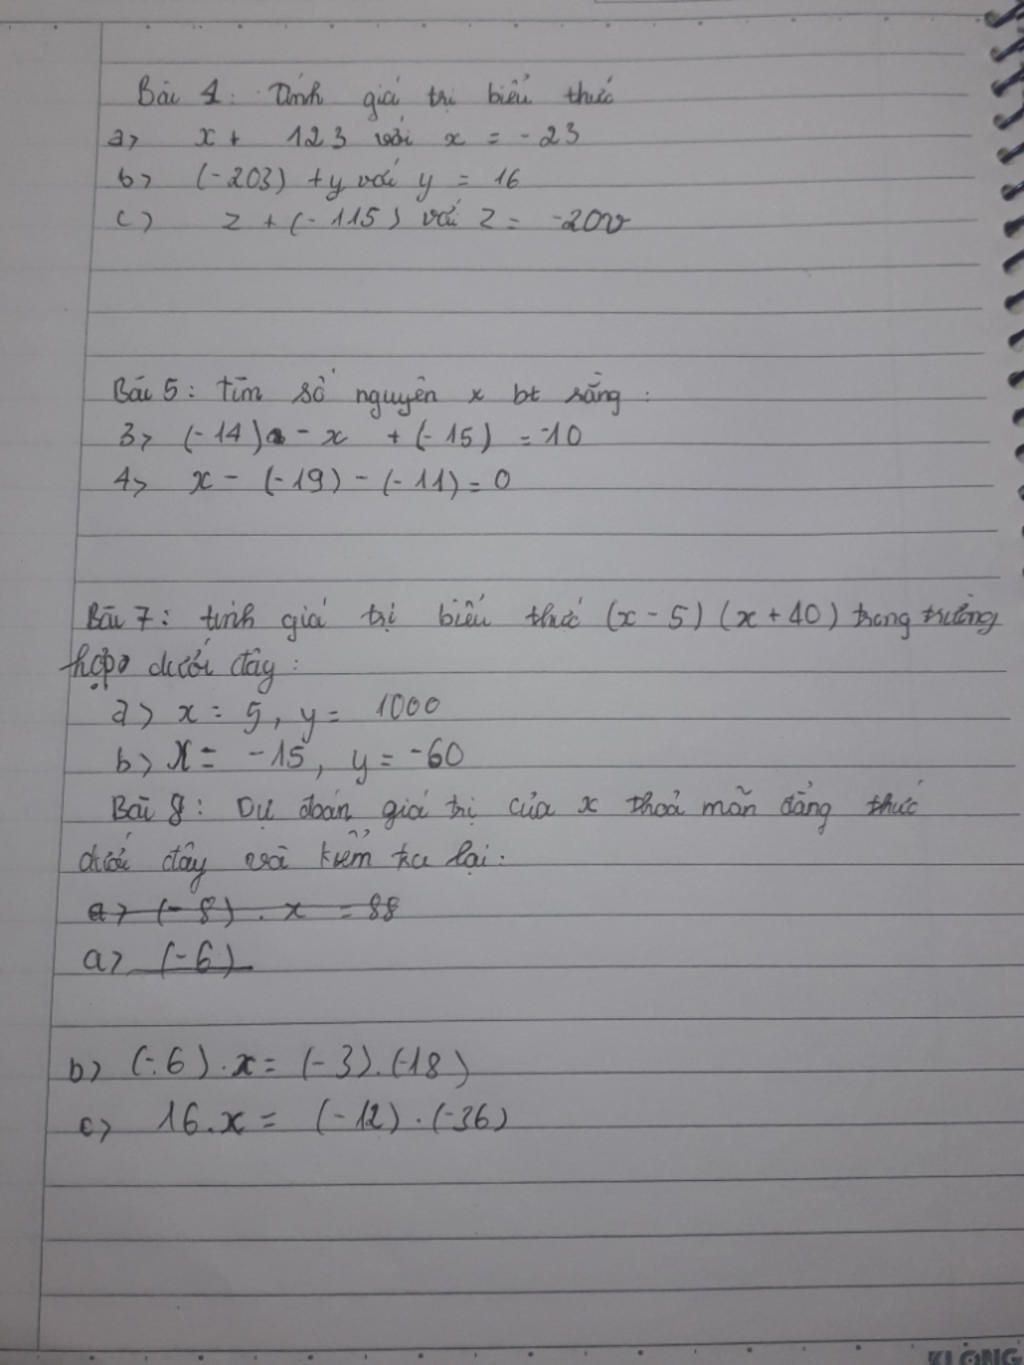 Bài 4: Tính giá trị biểu thức
a> x + 123 với x = -23
b> (-203) + y với y = 16
c) z + (-115) với z = -20
Bài 5: Tìm số nguyên x bt rằng:
3> (-14) - x + (-15) = -10
4> x - (-19) - (-11) = 0
Bài 7: tính giá trị biểu thức (x - 5) (x + 40) trong trường
hợp dưới đây:
a> x = 5, y = 1000
b> x = -15, y = -60
Bài 8: Dự đoán giá trị của x thoả mãn đẳng thức
dưới đây và kiểm tra lại:
a> (-8) . x = 88
a> (-6)
b> (-6) . x = (-3) . (-18)
c> 16 . x = (-12) . (-36)
KLONG